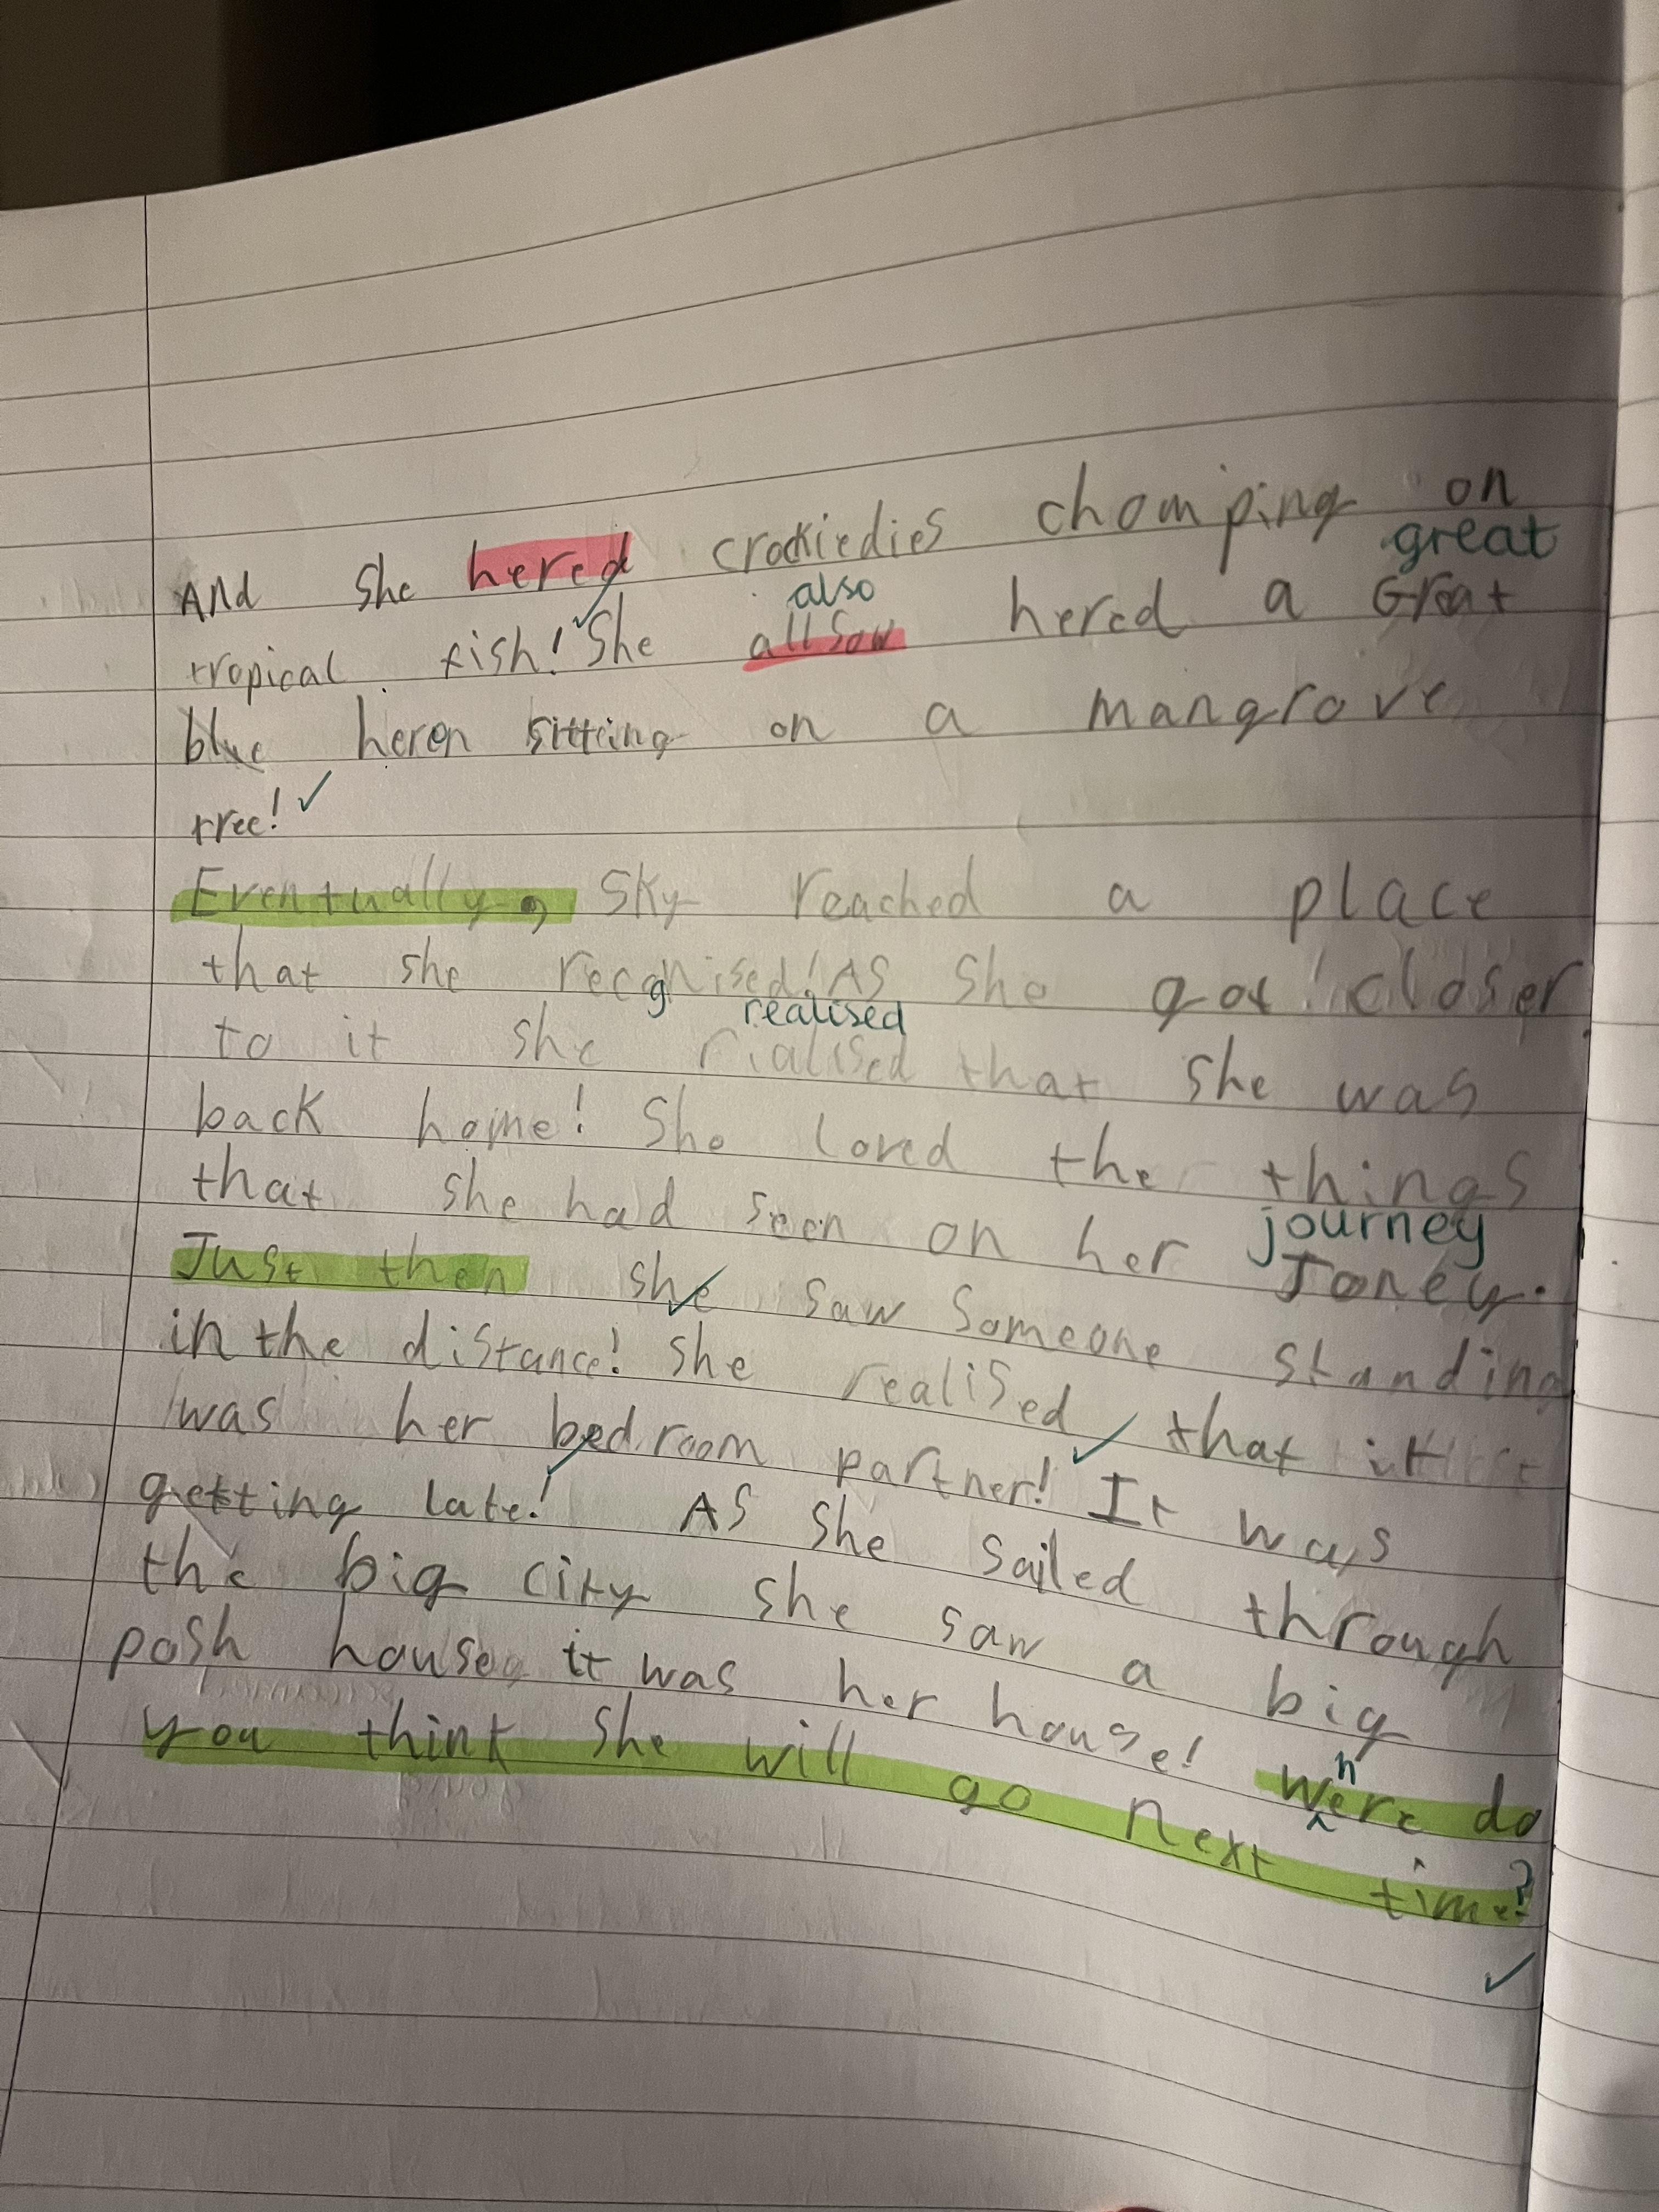 And she hered crockiedies chomping on
great
also
tropical fish! She allsow hered a Great
blue heron sitting on a mangrove
tree!
Eventually, Sky reached a place
that she recgnised! As she got closer
g
realised
to it she rialised that she was
back home! She loved the things
that she had seen on her Joney.
journey
Just then she saw someone standing
in the distance! she realised that it
was her bedroom partner! It was
getting late! As she sailed through
the big city she saw a big
posh house, it was her house! were do
h
you think she will go next time?